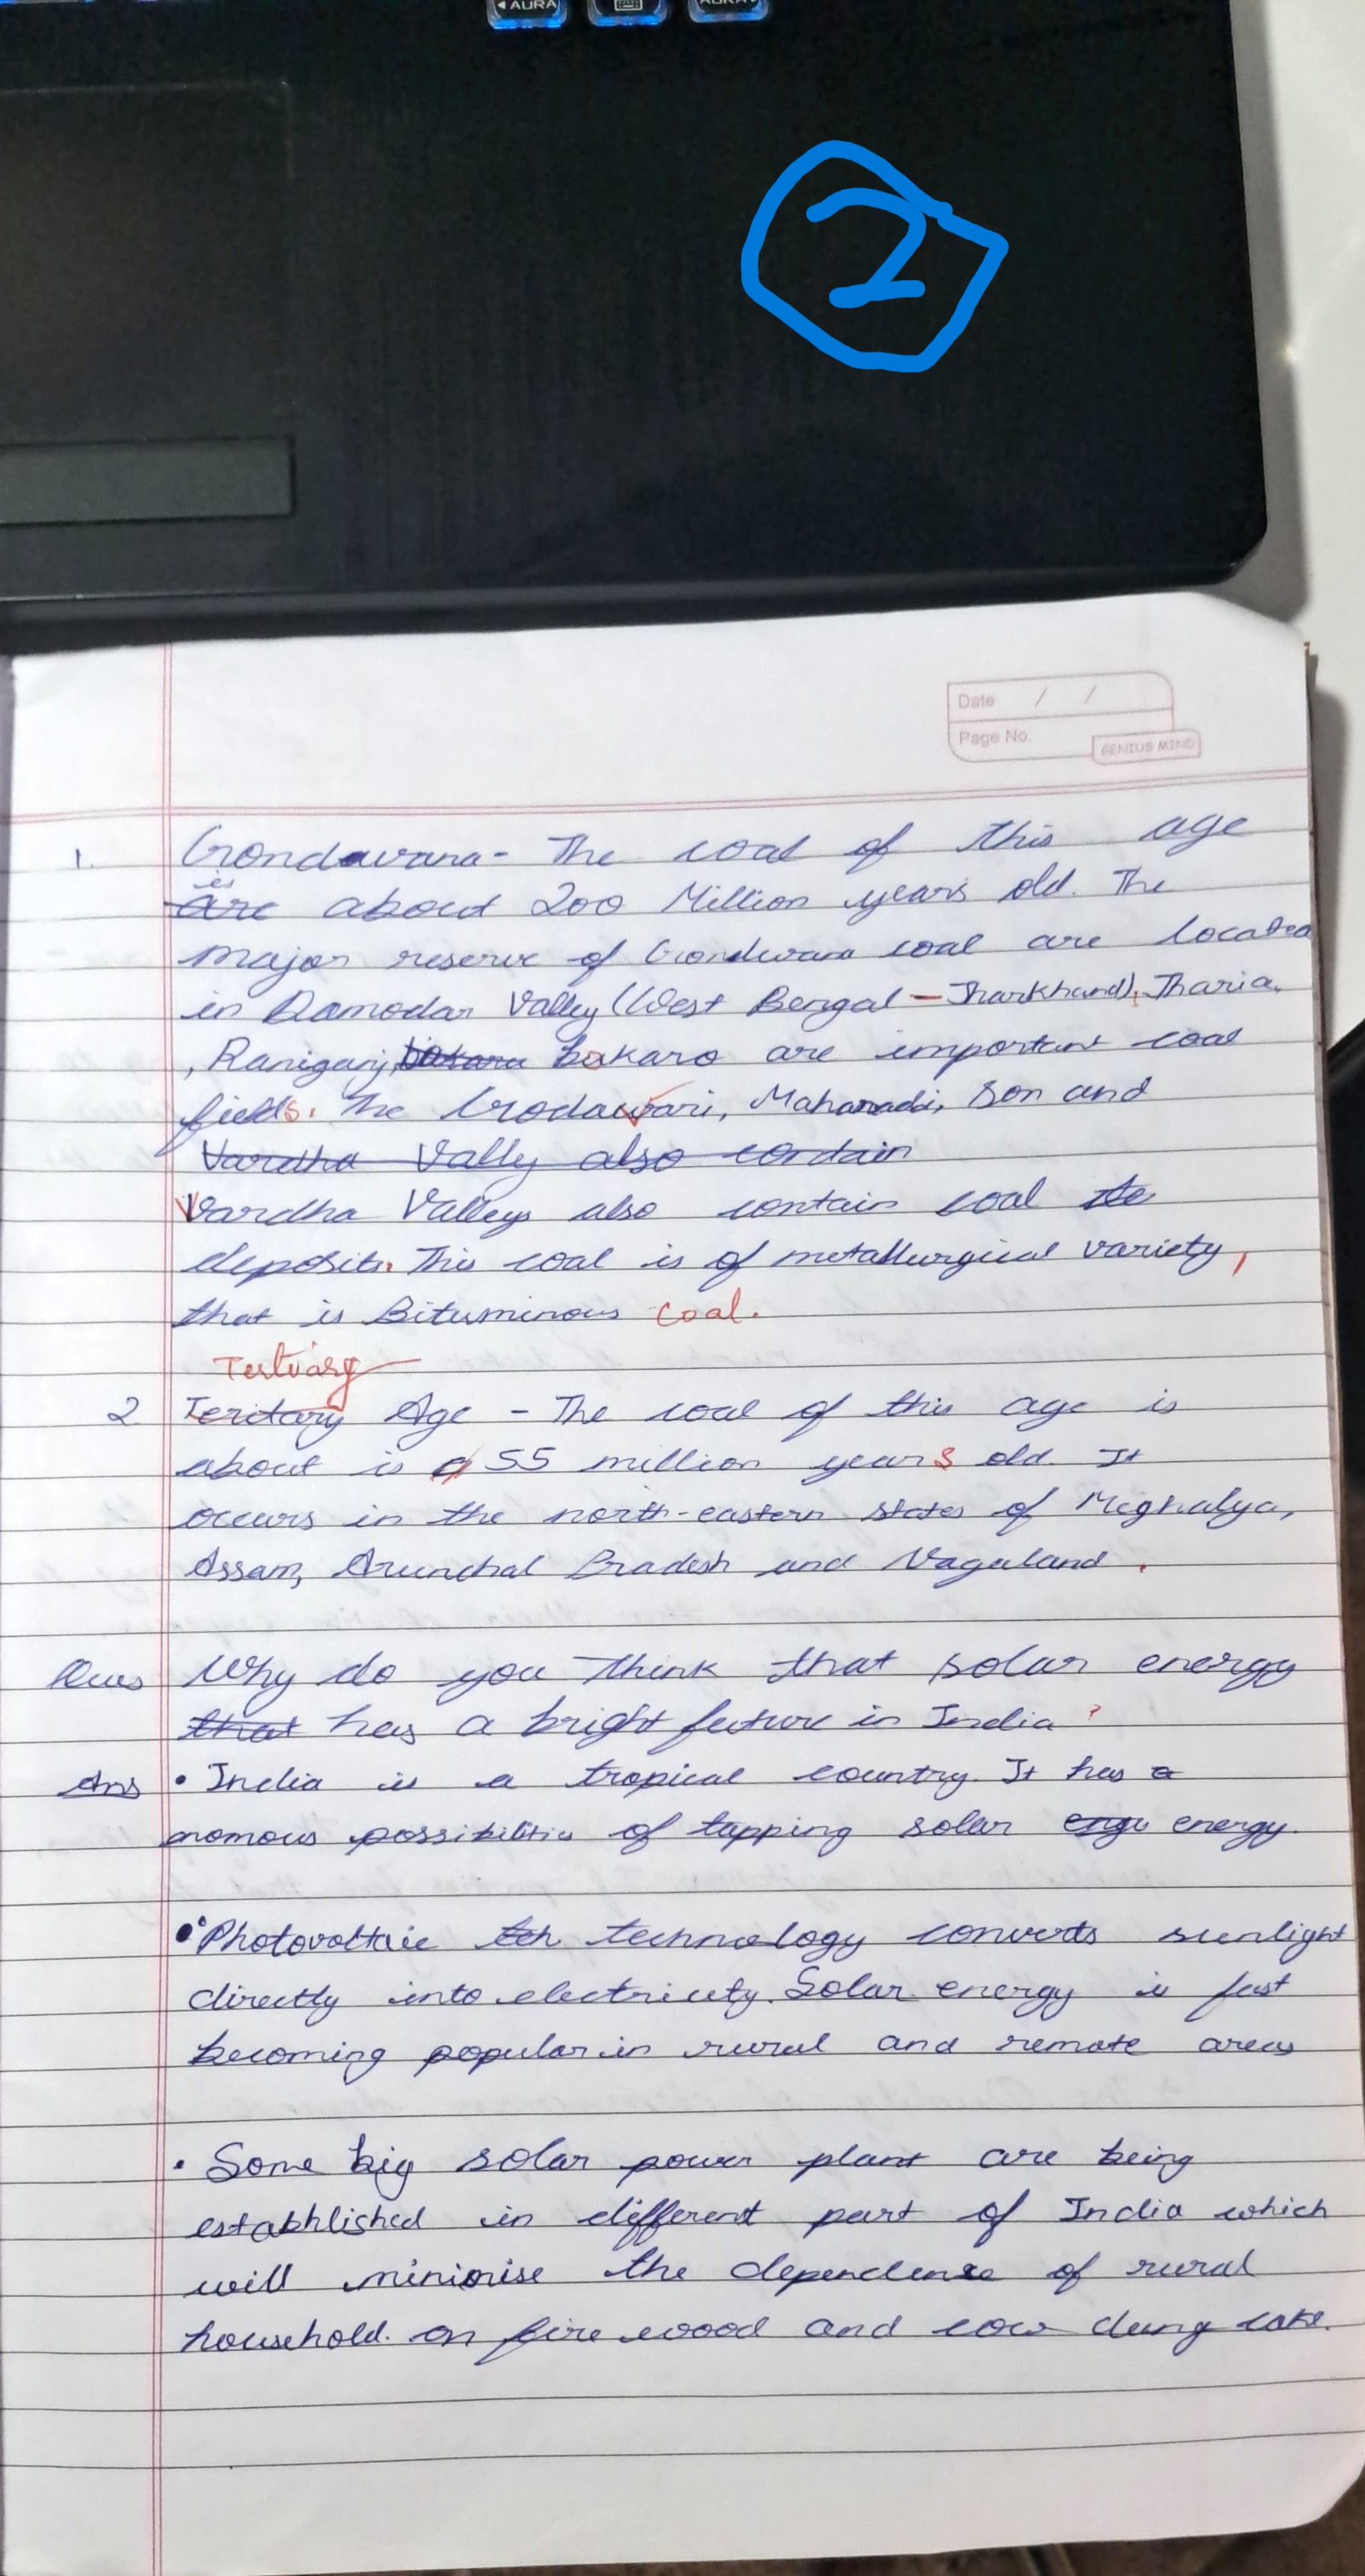 ◄ AURA
AURA
2
Date / /
Page No.
GENIUS MIND
1. Gondawana - The coal of this age
is
are about 200 Million years old. The
major reserve of Gondwana coal are located
in Damodar Valley (West Bengal - Jharkhand), Jharia,
, Raniganj, bokaro are important coal
fields. The Godawari, Mahanadi, Son and
Vardha Vally also contain
Vardha Valleys also contain coal de
deposits. This coal is of metallurgical variety,
that is Bituminous coal.
Tertiary
2 Teritary Age - The coal of this age is
about is 55 million years old. It
occurs in the north-eastern states of Meghalya,
Assam, Arunchal Pradesh and Nagaland.
Ques Why do you think that solar energy
that has a bright future in India ?
Ans • India is a tropical country. It has a
nomous possibilitis of tapping solar engu energy.
• Photovoltaic tch technology converts sunlight
directly into electricity. Solar energy is fast
becoming popular in rural and remote areas
• Some big solar power plant are being
estabhlished in different part of India which
will minimise the dependense of rural
household. on fire wood and cow dung cake.